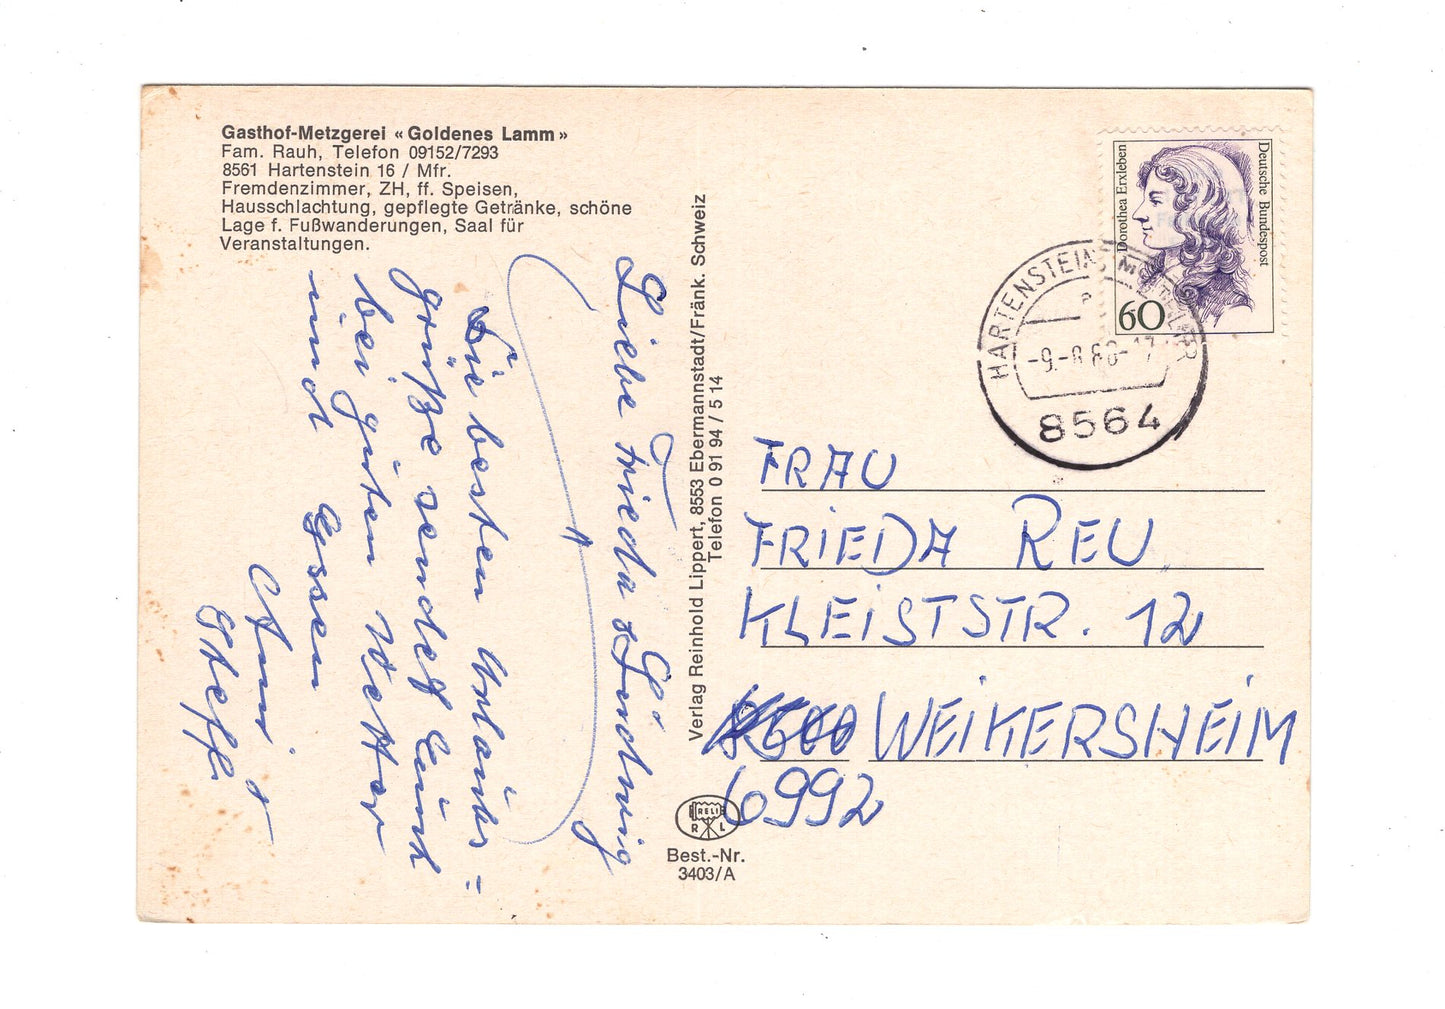 Gasthof-Metzgerei «Goldenes Lamm»
Fam. Rauh, Telefon 09152/7293
8561 Hartenstein 16 / Mfr.
Fremdenzimmer, ZH, ff. Speisen,
Hausschlachtung, gepflegte Getränke, schöne
Lage f. Fußwanderungen, Saal für
Veranstaltungen.
Liebe Frieda & Ludwig
Die besten Urlaubs=
grüße sendet Euch
bei guten Wetter
und Essen
Anni &
Verlag Reinhold Lippert, 8553 Ebermannstadt/Fränk. Schweiz
Telefon 0 91 94 / 5 14
Dorothea Erxleben
Deutsche Bundespost
60
HARTENSTEIN
8564
FRAU
FRIEDA REU
KLEISTSTR. 12
WEIKERSHEIM
6992
RELI
R L
Best.-Nr.
3403/A